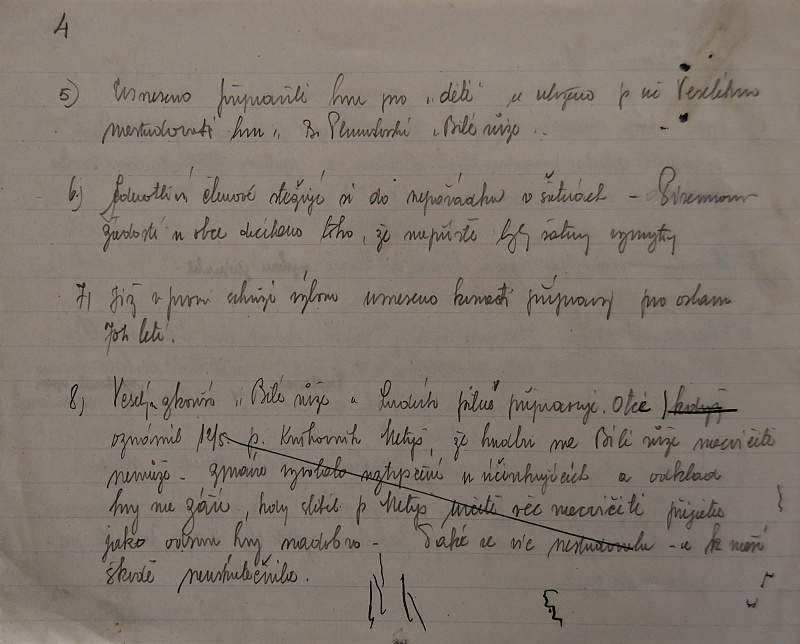 4
5) Usneseno připraviti hru pro „děti" a uloženo p. uč Veselému
nastudovati hru „ B. Plumlovské „Bílé růže ..
6.) Jednotliví členové stěžují si do nepořádku v šatnách – Písemnou
žádostí u obce docíleno toho, že napříště byly šatny vymyty
7, Již v první schůzi výboru usneseno konati přípravy pro oslavu
70ti letí.
8, Veselý zkouší „ Bílé růže a Ludvík pilně připravuje. Otče ) kodýž
oznámil 12/5. p. Knihovník Metyš, že hudbu na Bílé růže nacvičiti
nemůže – zpráva vyvolala roztrpčení u účinkujících a odklad
hry na září, kdy slíbil p Metyš určitě věc nacvičiti přijato
jako odsun hry nadobro – Také se víc nestudovalo – a k naší
škodě neuskutečnilo.